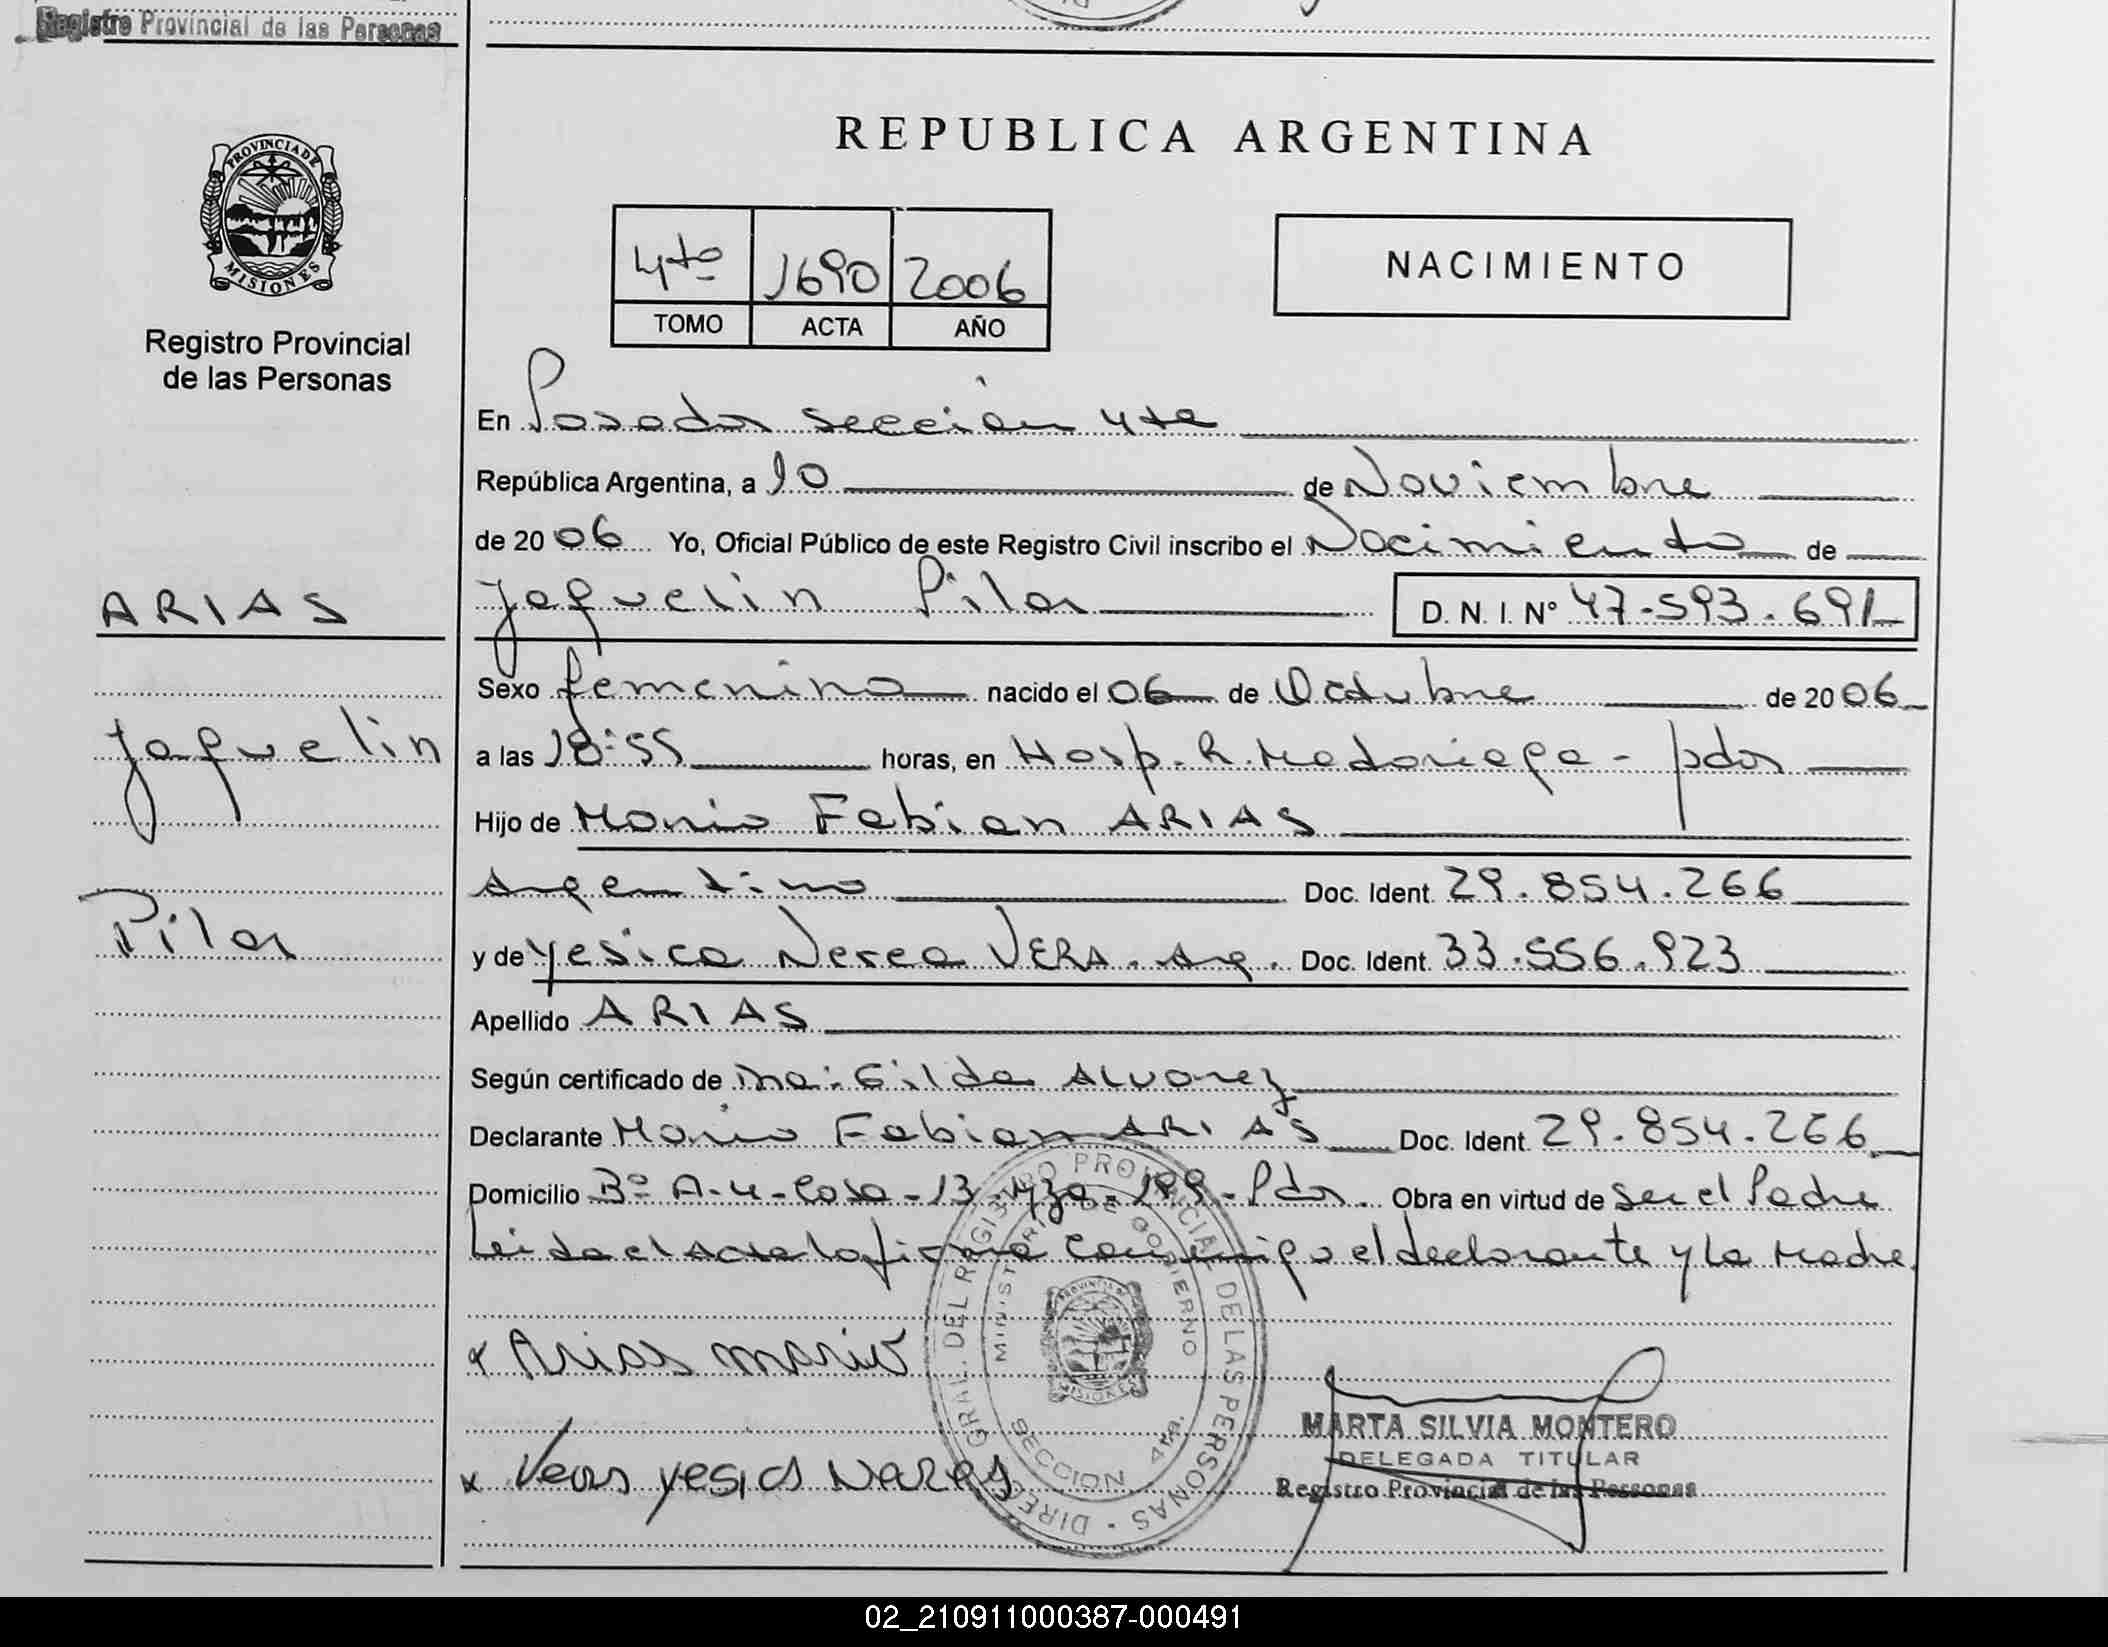 Registro Provincial de las Personas
REPUBLICA ARGENTINA
PROVINCIA DE
MISIONES
Registro Provincial
de las Personas
4to 1690 2006
TOMO ACTA AÑO
NACIMIENTO
En Posadas sección 4ta
República Argentina, a 10 de Noviembre
de 2006 Yo, Oficial Público de este Registro Civil inscribo el Nacimiento de
ARIAS
Jaquelin
Pilar
Jaquelin Pilar D. N. I. N° 47.593.691
Sexo femenino nacido el 06 de Octubre de 2006
a las 18:55 horas, en Hosp. R. Madariaga - pdas
Hijo de Mario Fabian ARIAS
Argentino Doc. Ident. 29.854.266
y de Yesica Nerea VERA. Arg. Doc. Ident. 33.556.923
Apellido ARIAS
Según certificado de Gilda Alvarez
Declarante Mario Fabian ARIAS Doc. Ident. 29.854.266
Domicilio B° A-4-Casa-13-Mza-199-Pdas. Obra en virtud de ser el Padre
Leida el Acta la firma conmigo el declarante y la Madre.
x Arias mario
x Vera yesica Nerea
DIREC. GRAL. DEL REGISTRO PROVINCIAL DE LAS PERSONAS
MINISTERIO DE GOBIERNO
PROVINCIA DE
MISIONES
SECCION 4ta.
MARTA SILVIA MONTERO
DELEGADA TITULAR
Registro Provincial de las Personas
02_210911000387-000491